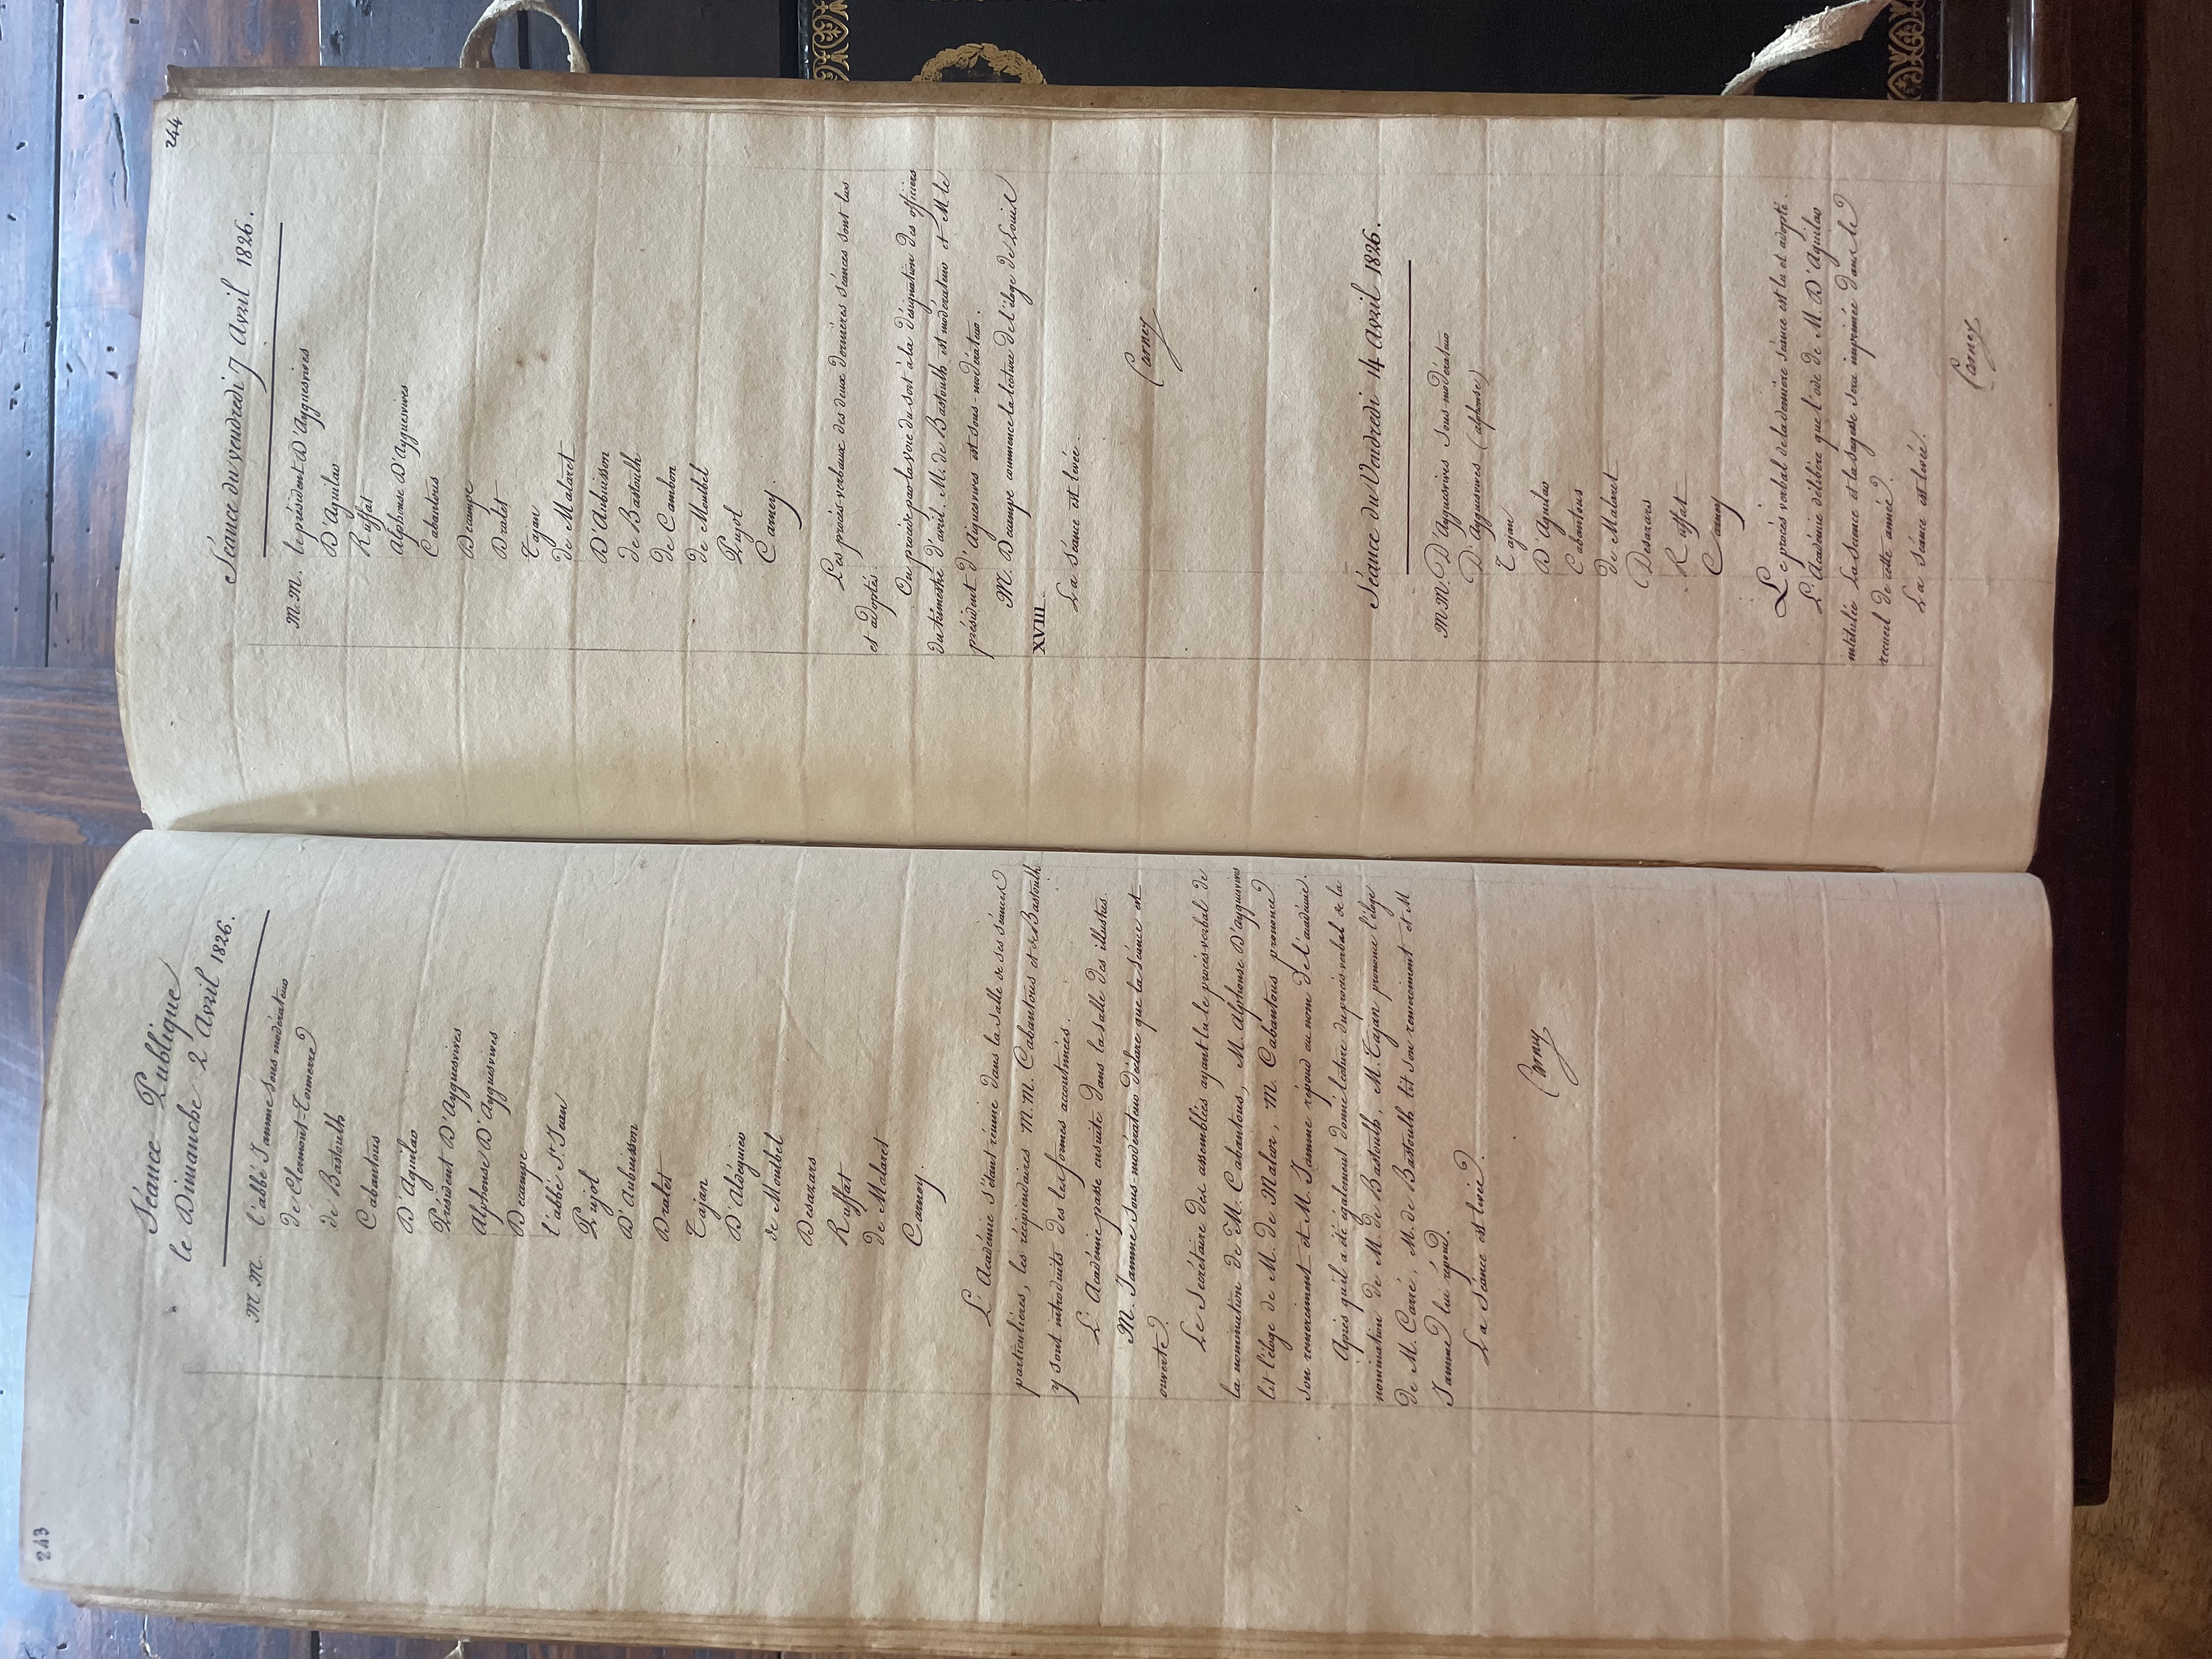 243
Séance Publique
le Dimanche 2 Avril 1826.
M.M. l'abbé Jamme sous modérateur
de Clermont-Tonnerre
de Bastoulh
Cabantous
D'Aguilar
Président D'Ayguesvives
Alphonse D'Ayguesvives
Decampe
l'abbé St. Jean
Pujol
D'Aubuisson
Dralet
Tajan
D'Aldéguier
de Montbel
Desazars
Ruffat
de Malaret
Carney.
L'Académie s'étant réunie dans la salle de ses séances
particulières, les récipiendaires M.M. Cabantous et de Bastoulh
y sont introduits dès les formes accoutumées.
L'Académie passe ensuite dans la salle des illustres.
M. Jamme sous-modérateur déclare que la séance est
ouverte.
Le Secrétaire des assemblées ayant lu le procès-verbal de
la nomination de M. Cabantous, M. Alphonse D'ayguesvives
lit l'éloge de M. de Malor, M. Cabantous prononce
son remerciment et M. Jamme répond au nom de l'académie.
Après qu'il a été également donné lecture du procès verbal de la
nomination de M. de Bastoulh, M. Tajan prononce l'éloge
de M. Carré, M. de Bastoulh lit son remerciment et M
Jamme lui répond.
La Séance est levée.
Carney
244
Séance du vendredi 7 Avril 1826.
M.M. le président D'Ayguesvives
D'Aguilar
Ruffat
Alphonse D'Ayguesvives
Cabantous
Decampe
Dralet
Tajan
de Malaret
D'Aubuisson
de Bastoulh
de Cambon
de Montbel
Pujol
Carney.
Les procès-verbaux des deux dernières séances sont lus
et adoptés.
On procède par la voie du sort à la désignation des officiers
du trimestre d'avril. M. de Bastoulh est modérateur et M le
président d'Aiguesvives est sous-modérateur.
M. Decampe commence la lecture de l'éloge de Louis
XVIII.
La séance est levée.
Carney
Séance du Vendredi 14 Avril 1826.
M.M. D'Ayguesvives sous-modérateur
D'Ayguesvives (alphonse)
Tajan
D'Aguilar
Cabantous
de Malaret
Desazars
Ruffat
Carney
Le procès verbal de la dernière séance est lu et adopté.
L'Académie délibère que l'ode de M. D'Aguilar
intitulée La science et la sagesse sera imprimée dans le
recueil de cette année.
La séance est levée.
Carney